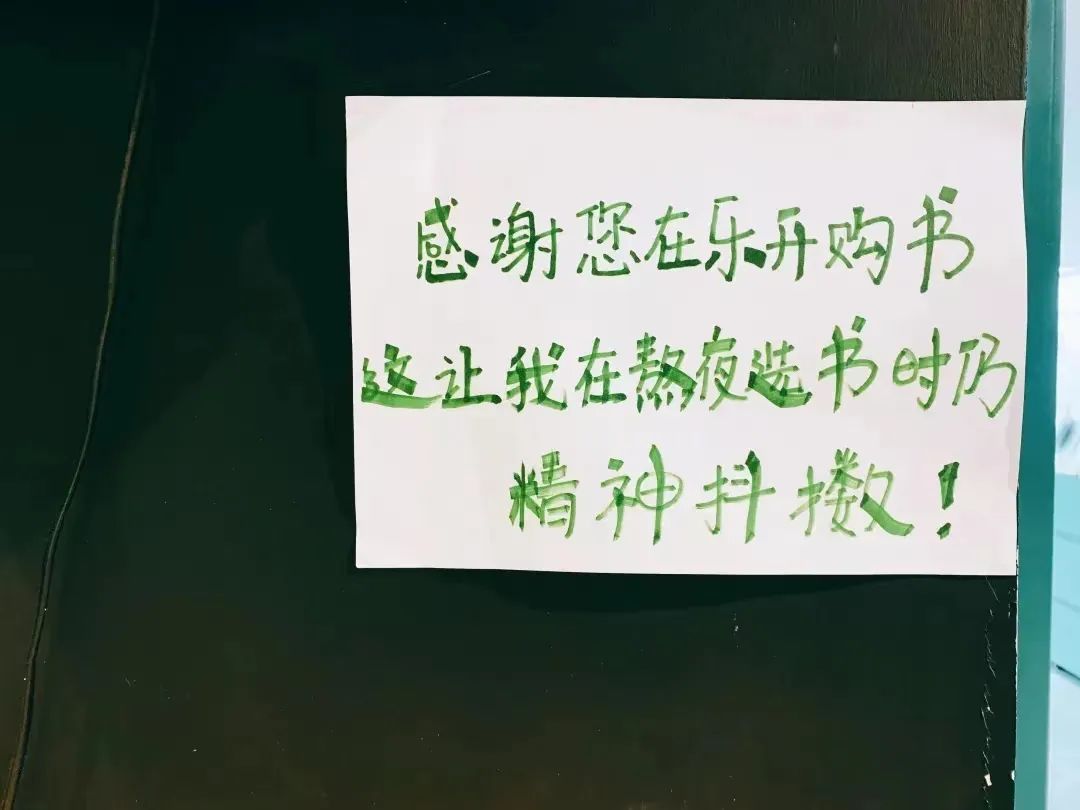 感谢您在乐开购书
这让我在熬夜选书时仍
精神抖擞！